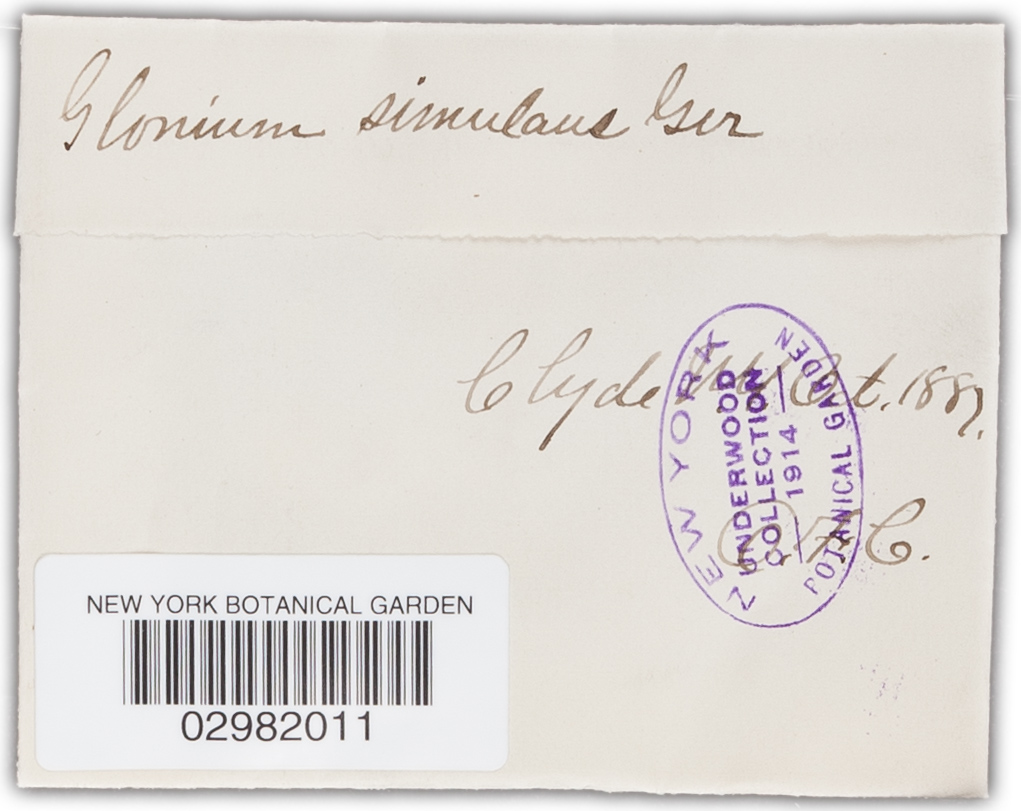 Glonium simulans Ger
Clyde NY Oct. 1887.
O.F.C.
NEW YORK BOTANICAL GARDEN
UNDERWOOD
COLLECTION
1914
NEW YORK BOTANICAL GARDEN
02982011